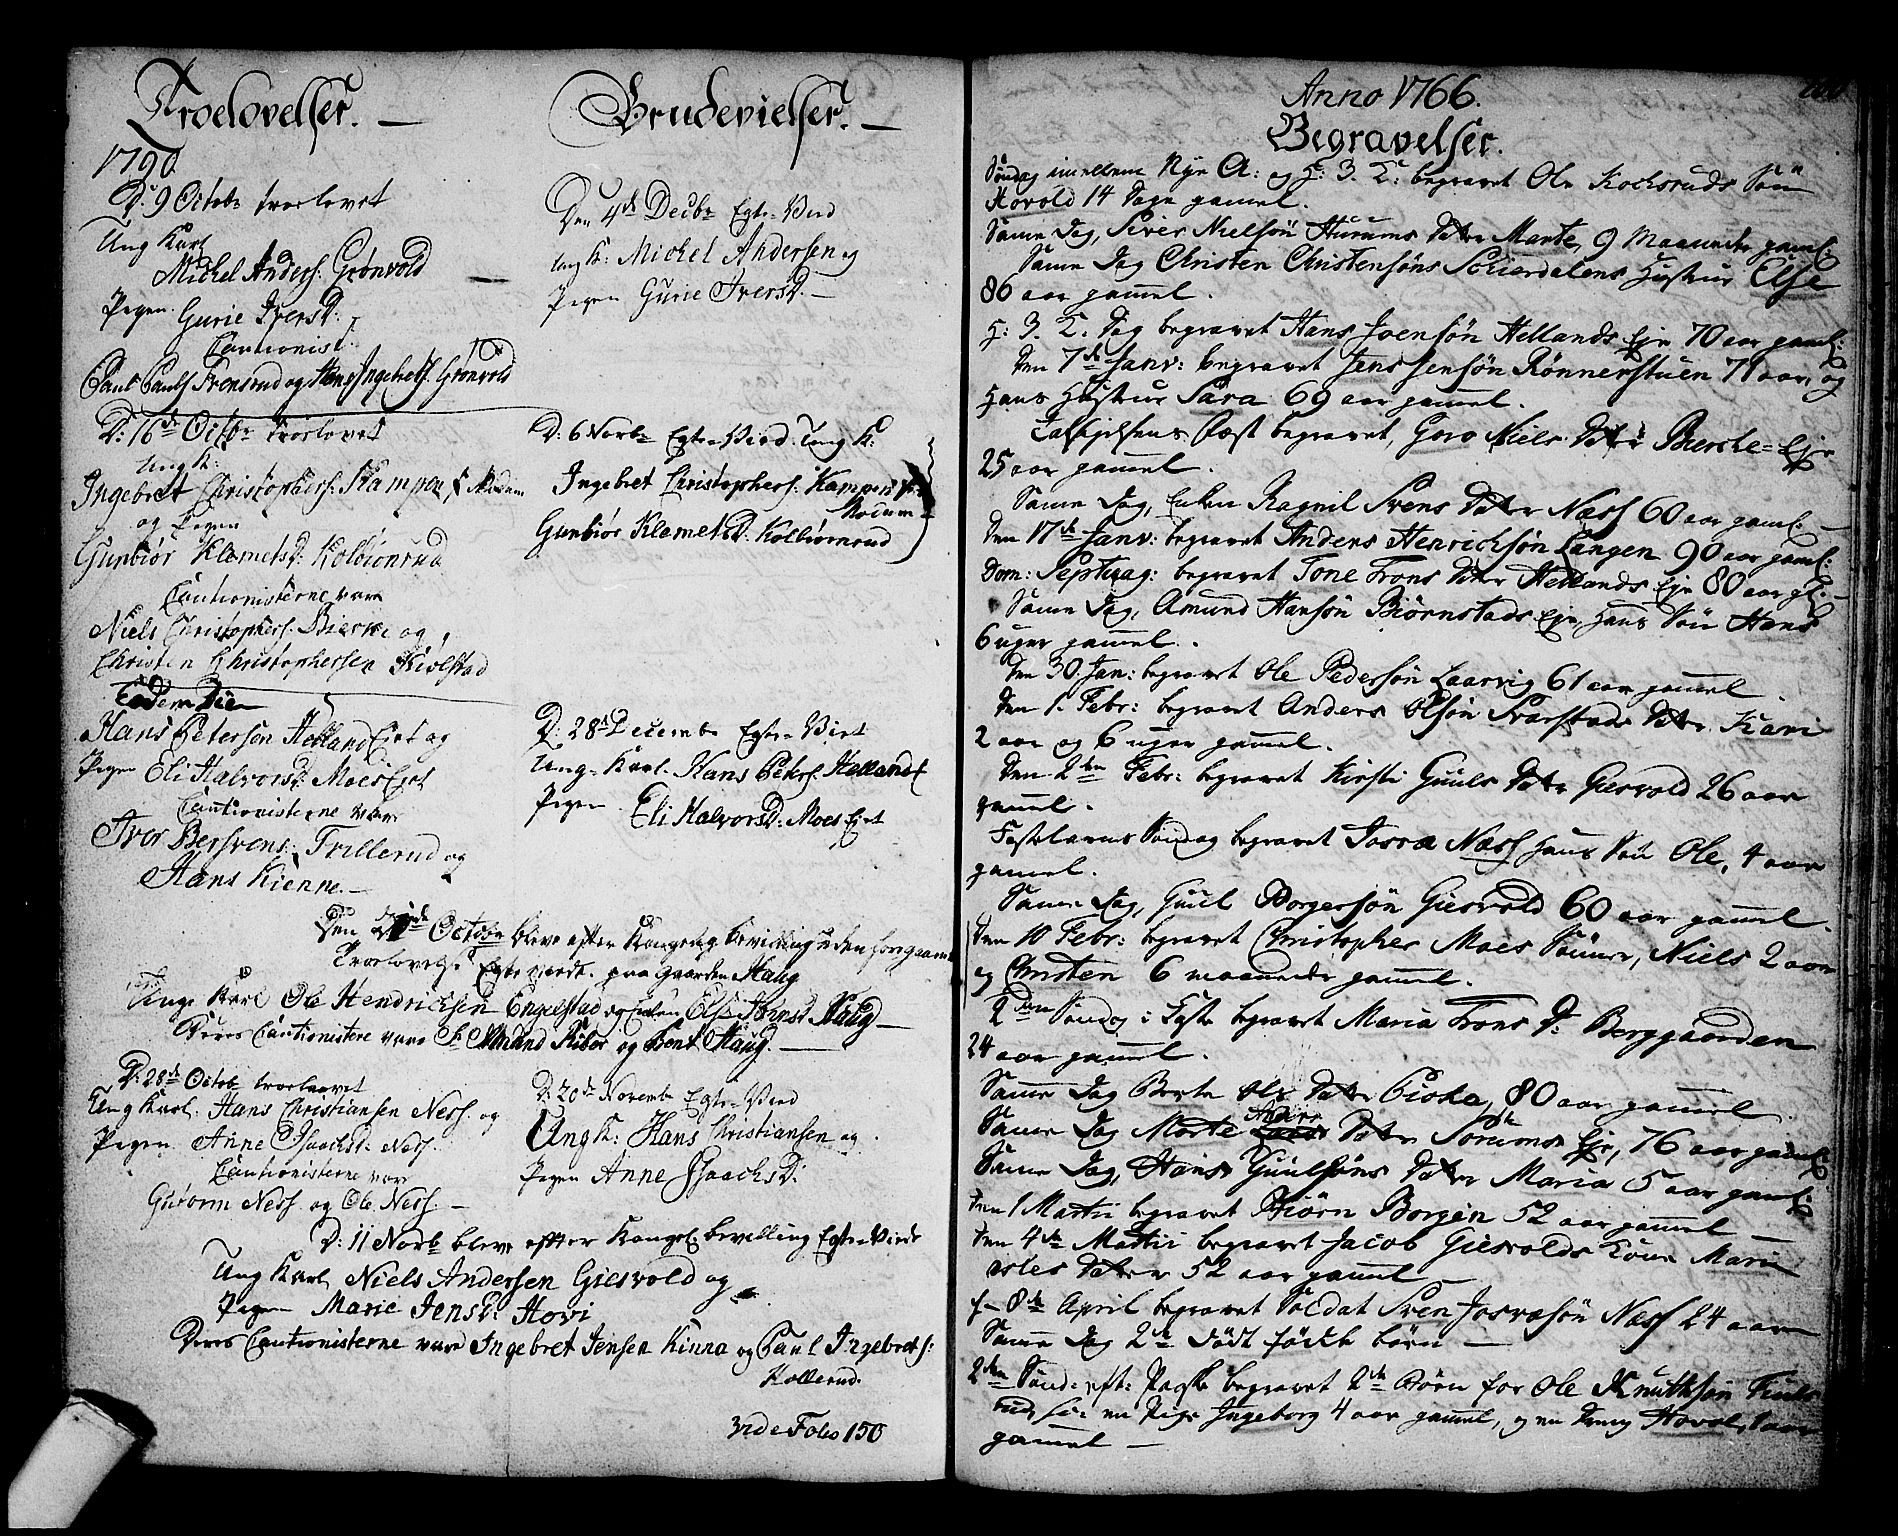 Troelovelser. —
1790
D. 9 Octobr troelovet
Ung Karl
Michel Anders: Grønvold
Pigen Gurie IversD:
Cautionist:
Paul Pauls Svensrud og Hans Ingebrets: Grønvold
D: 16de Octbr troelovet
Ung K:
Ingebret Christophers: Kampen, i Modum
og Pigen
Gunbiør KlemetsD: Kolbiønrud
Cautionisterne vare
Niels Christophers: Bierke og
Christen Christophersen Kiølstad
Eodem Die
Hans Petersen Helland Eiet og
Pigen Eli HalvorsD: Moes Eiet
Cautionisterne vare
Iver Bersvens: Trillerud og
Hans Kienne. —
Brudevielser. —
Den 4de Decbr Egte-Vied
Ung K: Michel Andersen og
Pigen Gurie IversD. —
D: 6 Novbr Egte-Vied. Ung K:
Ingebret Christophers: Kampen
Modum
Gunbiør KlemetsD: Kolbiørnrud
D: 28de Decembr Egte-Viet
Ung-Karl. Hans Peters: Helland
Pigen Eli HalvorsD: Moes Eiet
Den October bleve efter Kongelig bevilling uden foregaaende
Troelovelse Egteviede paa Gaarden Haug
Unge Karl Ole Hendrichsen Engelstad og Enken Else Haug —
Deres Cautionistere vare Amund Ribor og Bent Haug. —
D: 28de Octob troelaavet
Ung Karl. Hans Christiansen Ness. og
Pigen Anne IsaachsD: Ness.
Cautionisterne var
Guttorm Ness og Ole Ness. —
D: 20de Novembr Egte-Vied
Ung K: Hans Christiansen og
Pigen Anne IsaachsD:
D: 11 Novb bleve efter Kongel: bevilling Egte-Viede
Ung Karl Niels Andersen Giesvold og
Pigen Marie JensD: Hovi
Deres Cautionisterne vare Ingebret Jensen Kinna og Paul Ingebreths:
Kollerud.
Vide Folio 150
Anno 1766.
Begravelser.
Søndag imellem Nye A: og H: 3. K: begravet Ole Kochsruds Søn
Hovold 14 Dage gammel.
Samme Dag, Siver Nielsøn Hurums Datter Marte, 9 Maaneder gaml:
Samme Dag Christen Christensøns Skierdalens Hustrue Else
86 aar gammel.
H: 3. K. Dag begravet Hans Joensøn Hellands Eje 70 aar gaml:
Den 7de Janv: begravet Jens Jensøn Rønnerstuen 71 aar, og
Hans Hustrue Sara 69 aar gammel.
begravet, Goro Niels Datter Bierke-Eje
25 aar gammel.
Samme Dag, Enken Ragnil Svens Datter Næss 60 aar gaml: —
Den 17de Janv: begravet Anders Henrichsøn Langen 90 aar gaml:
Dom: Septuag: begravet Tone Trons Datter Hellands Eje 80 aar gl: —
Samme Dag, Amund Hansøn Biørnstads Eje, Hans Søn Hans
6 uger gammel.
Den 30 Jan: begravet Ole Pedersøn Laarvig 61 aar gammel.
Den 1. Febr: begravet Anders Olsøn Svarstads Datter Kari
2 aar og 6 uger gammel.
Den 2den Febr: begravet Kirsti Guuls Datter Giesvold 26 aar
gammel.
Fastelavns Søndag begravet Josva Næss Hans Søn Ole, 4 aar
gammel.
Samme Dag, Guul Borgersøn Giesvold 60 aar gammel.
Den 10 Febr: begravet Christopher Moes Sønner, Niels 2 aar
og Christen 6 maaneder gammel.
2den Søndag i Faste begravet Maria Trons D: Berggaarden
24 aar gammel.
Samme Dag Berte Ols Datter Piska, 80 aar gammel.
Samme Dag Marte Anders Datter Sorums Eje, 76 aar gammel
Samme Dag, Hans Guulsøns Datter Maria 5 aar gaml:
Den 1 Martii begravet Biørn Borgen 52 aar gammel —
Den 4de Martii begravet Jacob Giesvolds Kone Marie
Datter 52 aar gammel —
8de April begravet Soldat Sven Josvasøn Næss 24 aar
Samme Dag 2de død fødte børn —
2den Sønd: eft: Paaske begravet 2de Børn for Ole Knuthsøn
en Pige Ingeborg 4 aar gammel, og en Dreng Hovol, 1 aar
gammel —